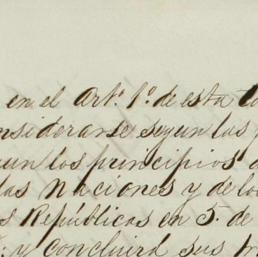 en el Art.º 1.º de esta
considerarse segun las
los principios
las Naciones y de lo
Republicas en 5. de
y concluirá sus